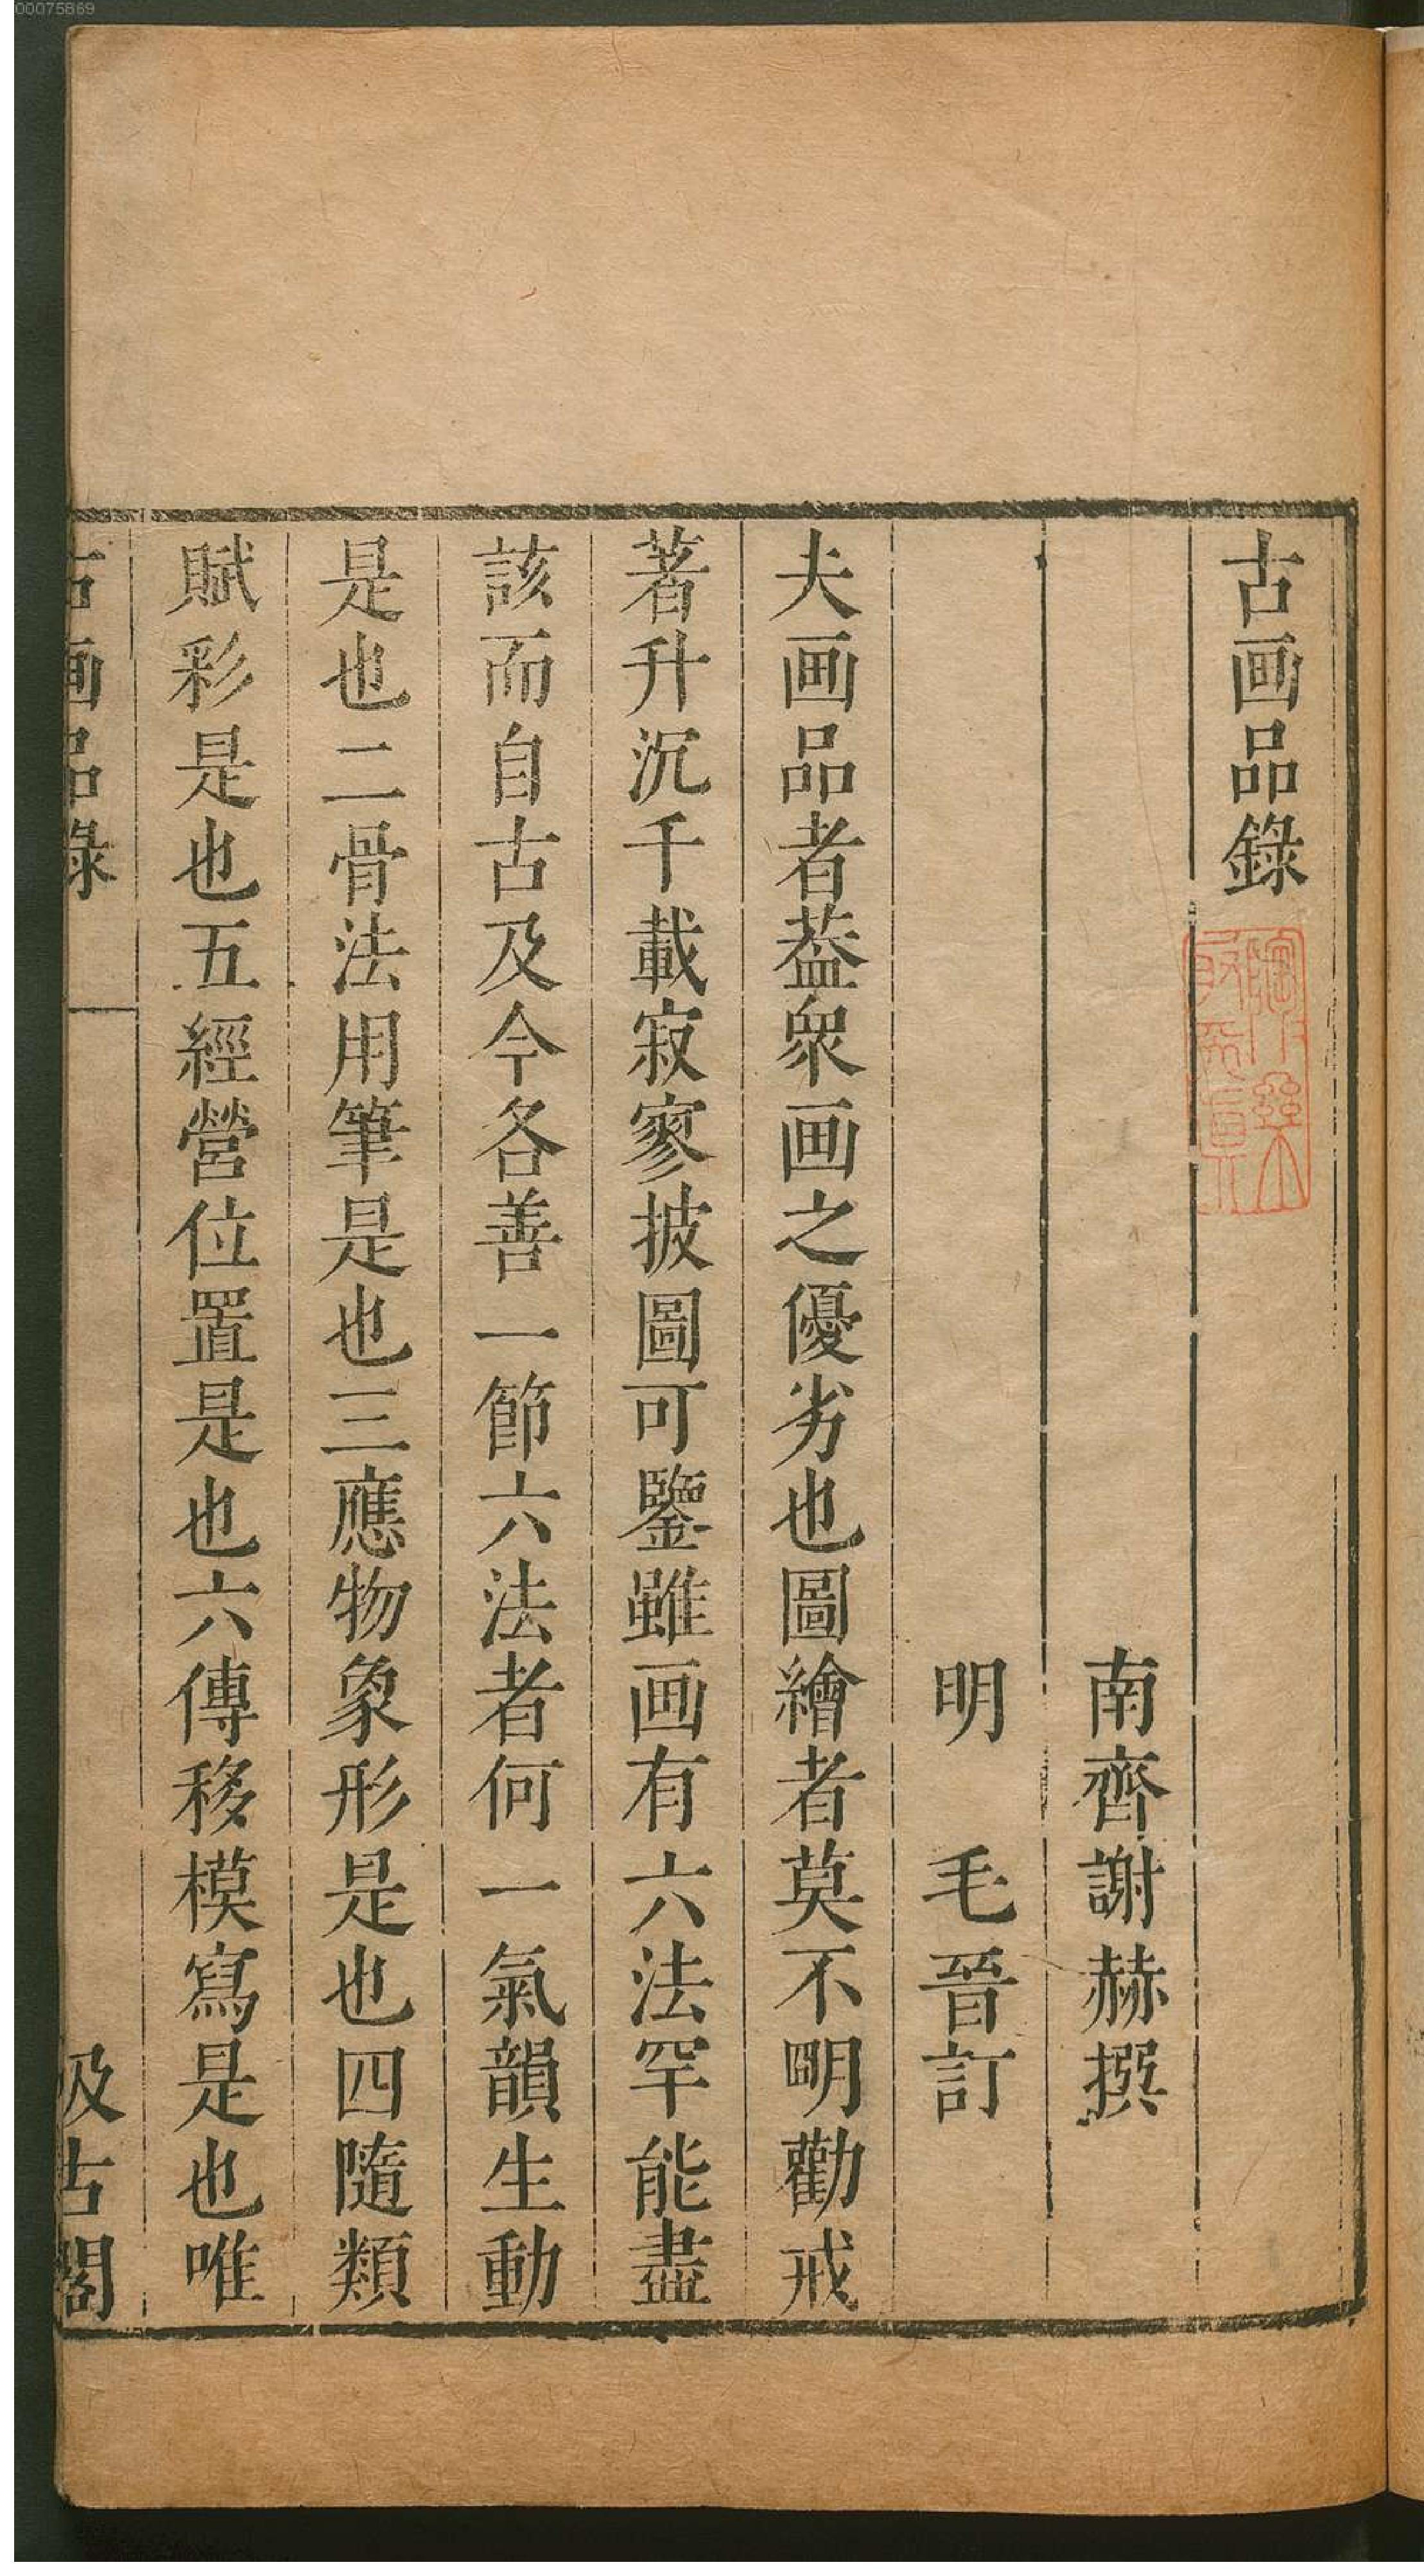 00075869
古画品錄
南齊謝赫撰
明 毛晉訂
夫画品者葢衆画之優劣也圖繪者莫不明勸戒
著升沉千載寂寥披圖可鑒雖画有六法罕能盡
該而自古及今各善一節六法者何一氣韻生動
是也二骨法用筆是也三應物象形是也四隨類
賦彩是也五經營位置是也六傳移模寫是也唯
古画品錄 一 汲古閣